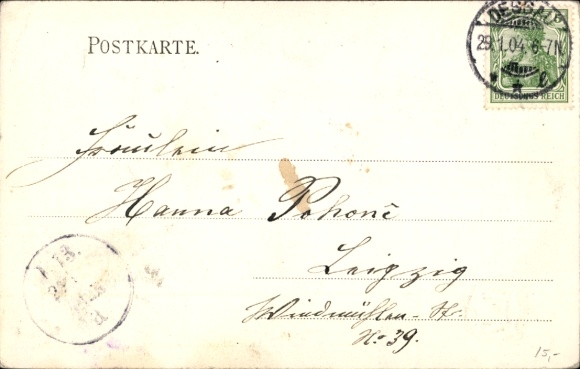 POSTKARTE.
DESSAU
29.1.04.6-7N
* * l
DEUTSCHES REICH
Fräulein
Hanna Pohonč
Leipzig
Windmühlen-Str.
No 39.
15,-